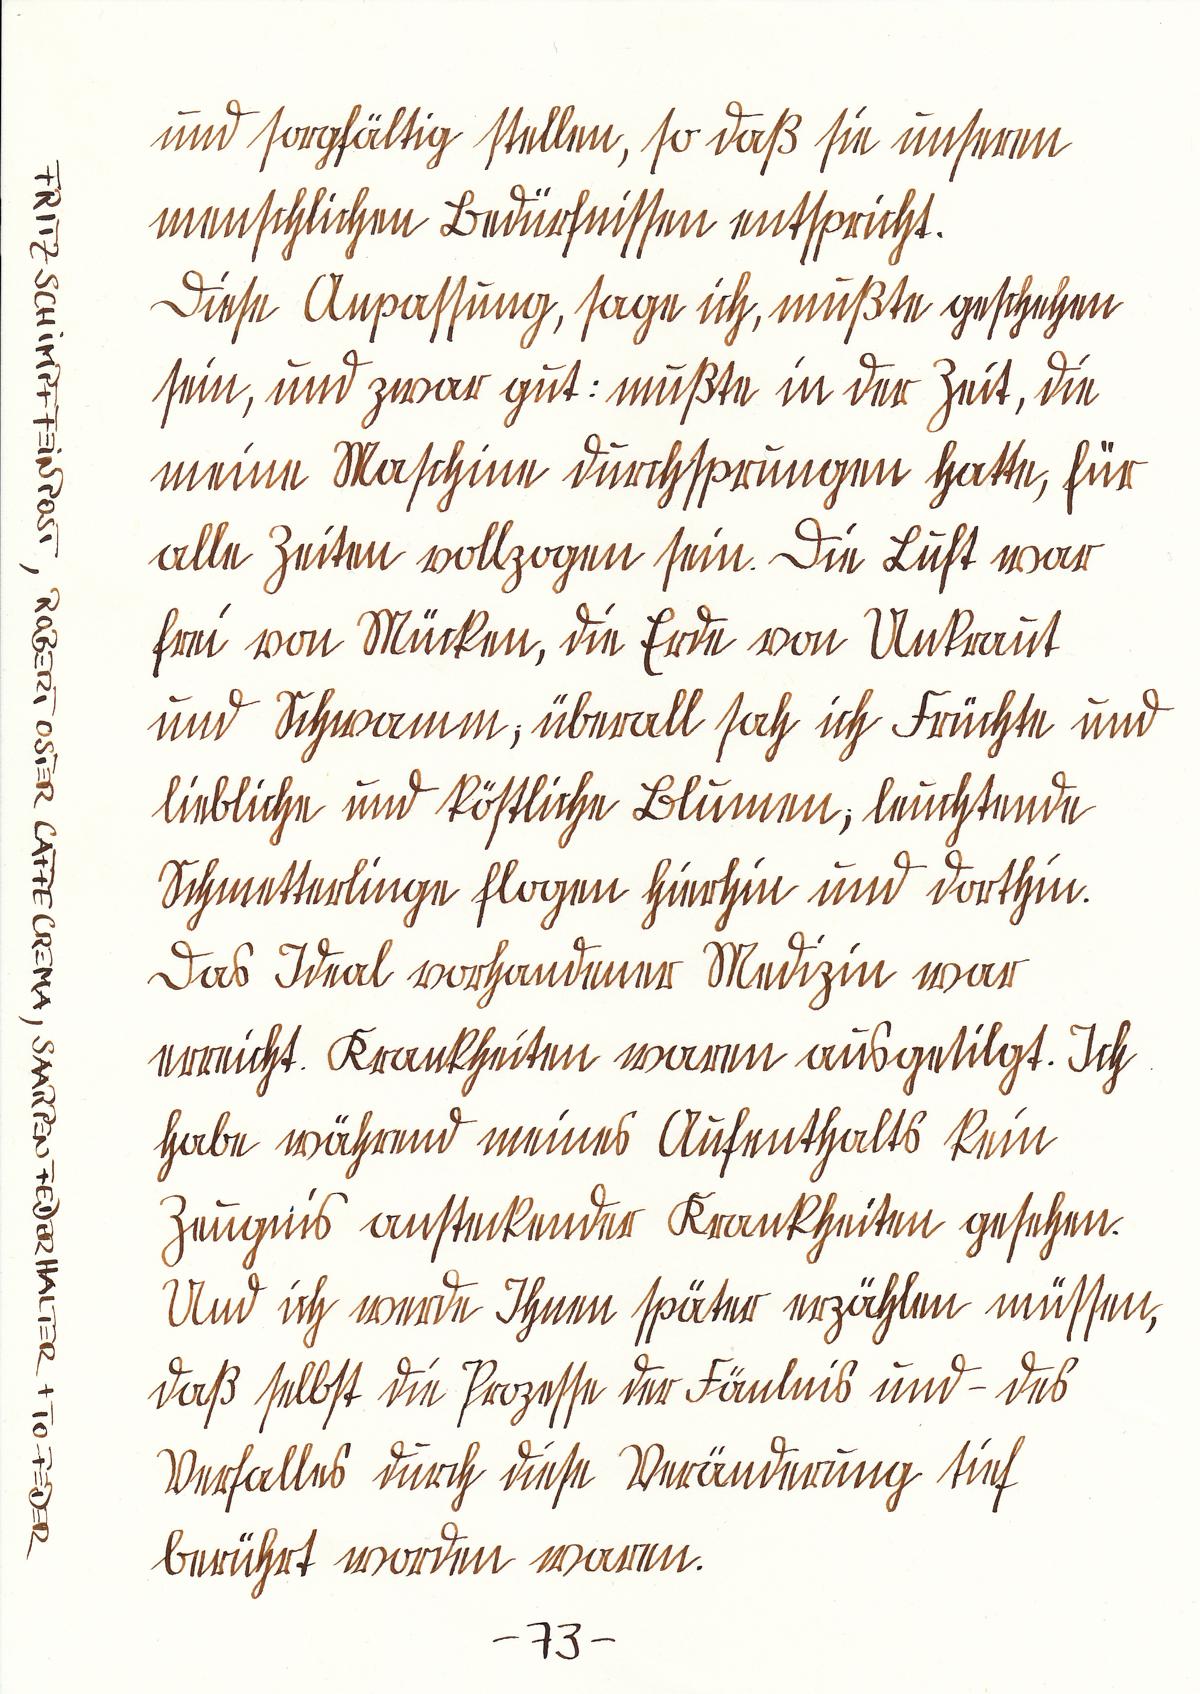 und sorgfältig stellen, so daß sie unseren
menschlichen Bedürfnissen entspricht.
Diese Anpassung, sage ich, mußte geschehen
sein, und zwar gut: mußte in der Zeit, die
meine Maschine durchsprungen hatte, für
alle Zeiten vollzogen sein. Die Luft war
frei von Mücken, die Erde von Unkraut
und Schwamm; überall sah ich Früchte und
liebliche und köstliche Blumen; leuchtende
Schmetterlinge flogen hierhin und dorthin.
Das Ideal vorhandener Medizin war
erreicht. Krankheiten waren ausgetilgt. Ich
habe während meines Aufenthalts kein
Zeugnis ansteckender Krankheiten gesehen.
Und ich werde Ihnen später erzählen müssen,
daß selbst die Prozesse der Fäulnis und - des
Verfalles durch diese Veränderung tief
berührt worden waren.
-73-
FRITZ SCHIMPF FEINPOST, ROBERT OSTER CAFFE CREMA, SAARPEN FEDERHALTER + TO FEDER